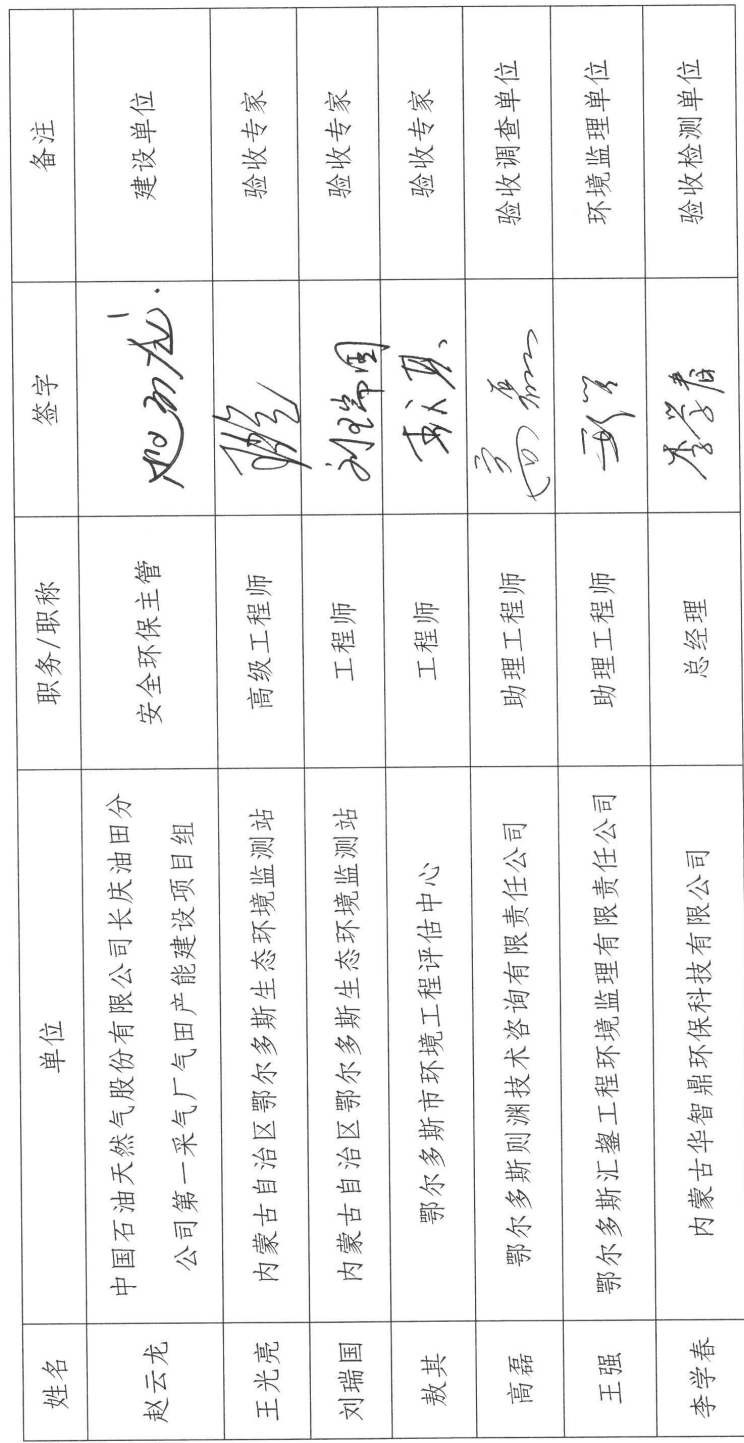 姓名 单位 职务/职称 签字 备注
赵云龙 中国石油天然气股份有限公司长庆油田分 安全环保主管 建设单位
公司第一采气厂气田产能建设项目组
王光亮 内蒙古自治区鄂尔多斯生态环境监测站 高级工程师 验收专家
刘瑞国 内蒙古自治区鄂尔多斯生态环境监测站 工程师 刘瑞国 验收专家
敖其 鄂尔多斯市环境工程评估中心 工程师 验收专家
高磊 鄂尔多斯则渊技术咨询有限责任公司 助理工程师 高磊 验收调查单位
王强 鄂尔多斯汇鋆工程环境监理有限责任公司 助理工程师 环境监理单位
李学春 内蒙古华智鼎环保科技有限公司 总经理 李学春 验收检测单位